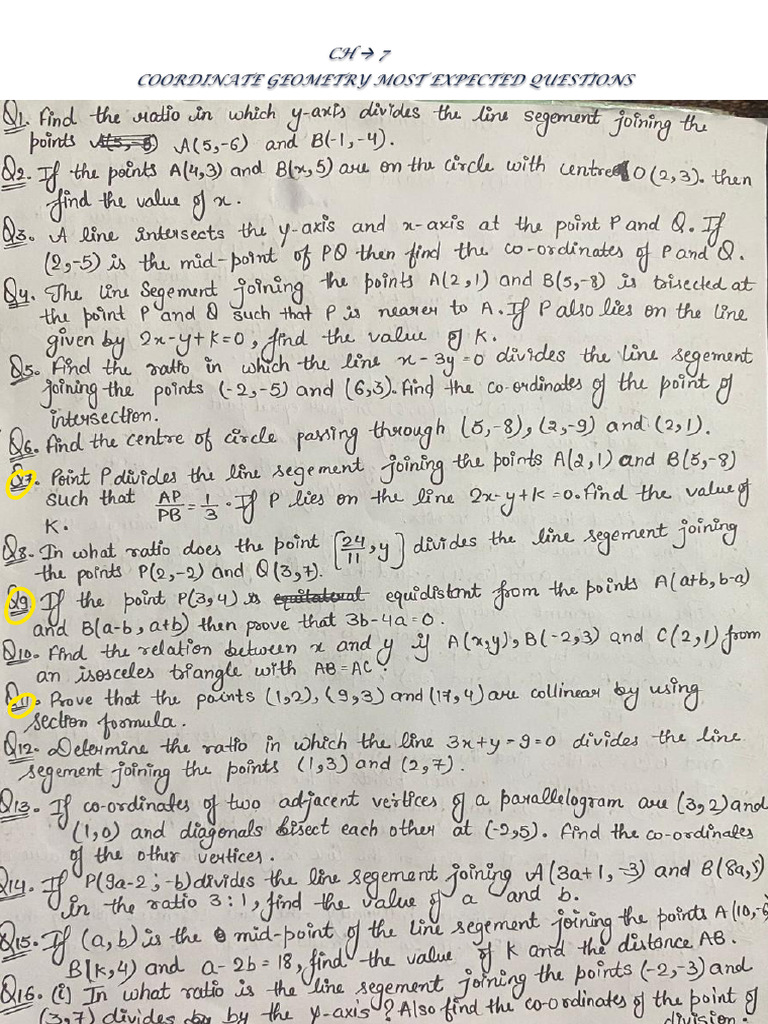 CH → 7
COORDINATE GEOMETRY MOST EXPECTED QUESTIONS
Q1. Find the ratio in which y-axis divides the line segement joining the
points A(5,-6) and B(-1,-4).
Q2. If the points A(4,3) and B(x,5) are on the circle with centre O(2,3). then
find the value of x.
Q3. A line intersects the y-axis and x-axis at the point P and Q. If
(2,-5) is the mid-point of PQ then find the co-ordinates of P and Q.
Q4. The line Segement joining the points A(2,1) and B(5,-8) is trisected at
the point P and Q such that P is nearer to A. If P also lies on the line
given by 2x-y+k=0, find the value of K.
Q5. Find the ratio in which the line x-3y=0 divides the line segement
joining the points (-2,-5) and (6,3). Find the co-ordinates of the point of
intersection.
Q6. Find the centre of circle passing through (5,-8), (2,-9) and (2,1).
Q7. Point P divides the line segement joining the points A(2,1) and B(5,-8)
such that AP/PB = 1/3. If P lies on the line 2x-y+k=0. Find the value of
K.
Q8. In what ratio does the point [24/11, y] divides the line segement joining
the points P(2,-2) and Q(3,7).
Q9. If the point P(3,4) is equidistant from the points A(a+b, b-a)
and B(a-b, a+b) then prove that 3b-4a=0.
Q10. Find the relation between x and y if A(x,y), B(-2,3) and C(2,1) from
an isosceles triangle with AB=AC.
Q11. Prove that the points (1,2), (9,3) and (17,4) are collinear by using
section formula.
Q12. Determine the ratio in which the line 3x+y-9=0 divides the line
segement joining the points (1,3) and (2,7).
Q13. If co-ordinates of two adjacent vertices of a parallelogram are (3,2) and
(1,0) and diagonals bisect each other at (-2,5). Find the co-ordinates
of the other vertices.
Q14. If P(9a-2, -b) divides the line segement joining A(3a+1, -3) and B(8a,5)
in the ratio 3:1, find the value of a and b.
Q15. If (a,b) is the mid-point of the line segement joining the points A(10,-6)
B(K,4) and a-2b=18, find the value of K and the distance AB.
Q16. (i) In what ratio is the line segement joining the points (-2,-3) and
(3,7) divides by the y-axis? Also find the co-ordinates of the point of
division.